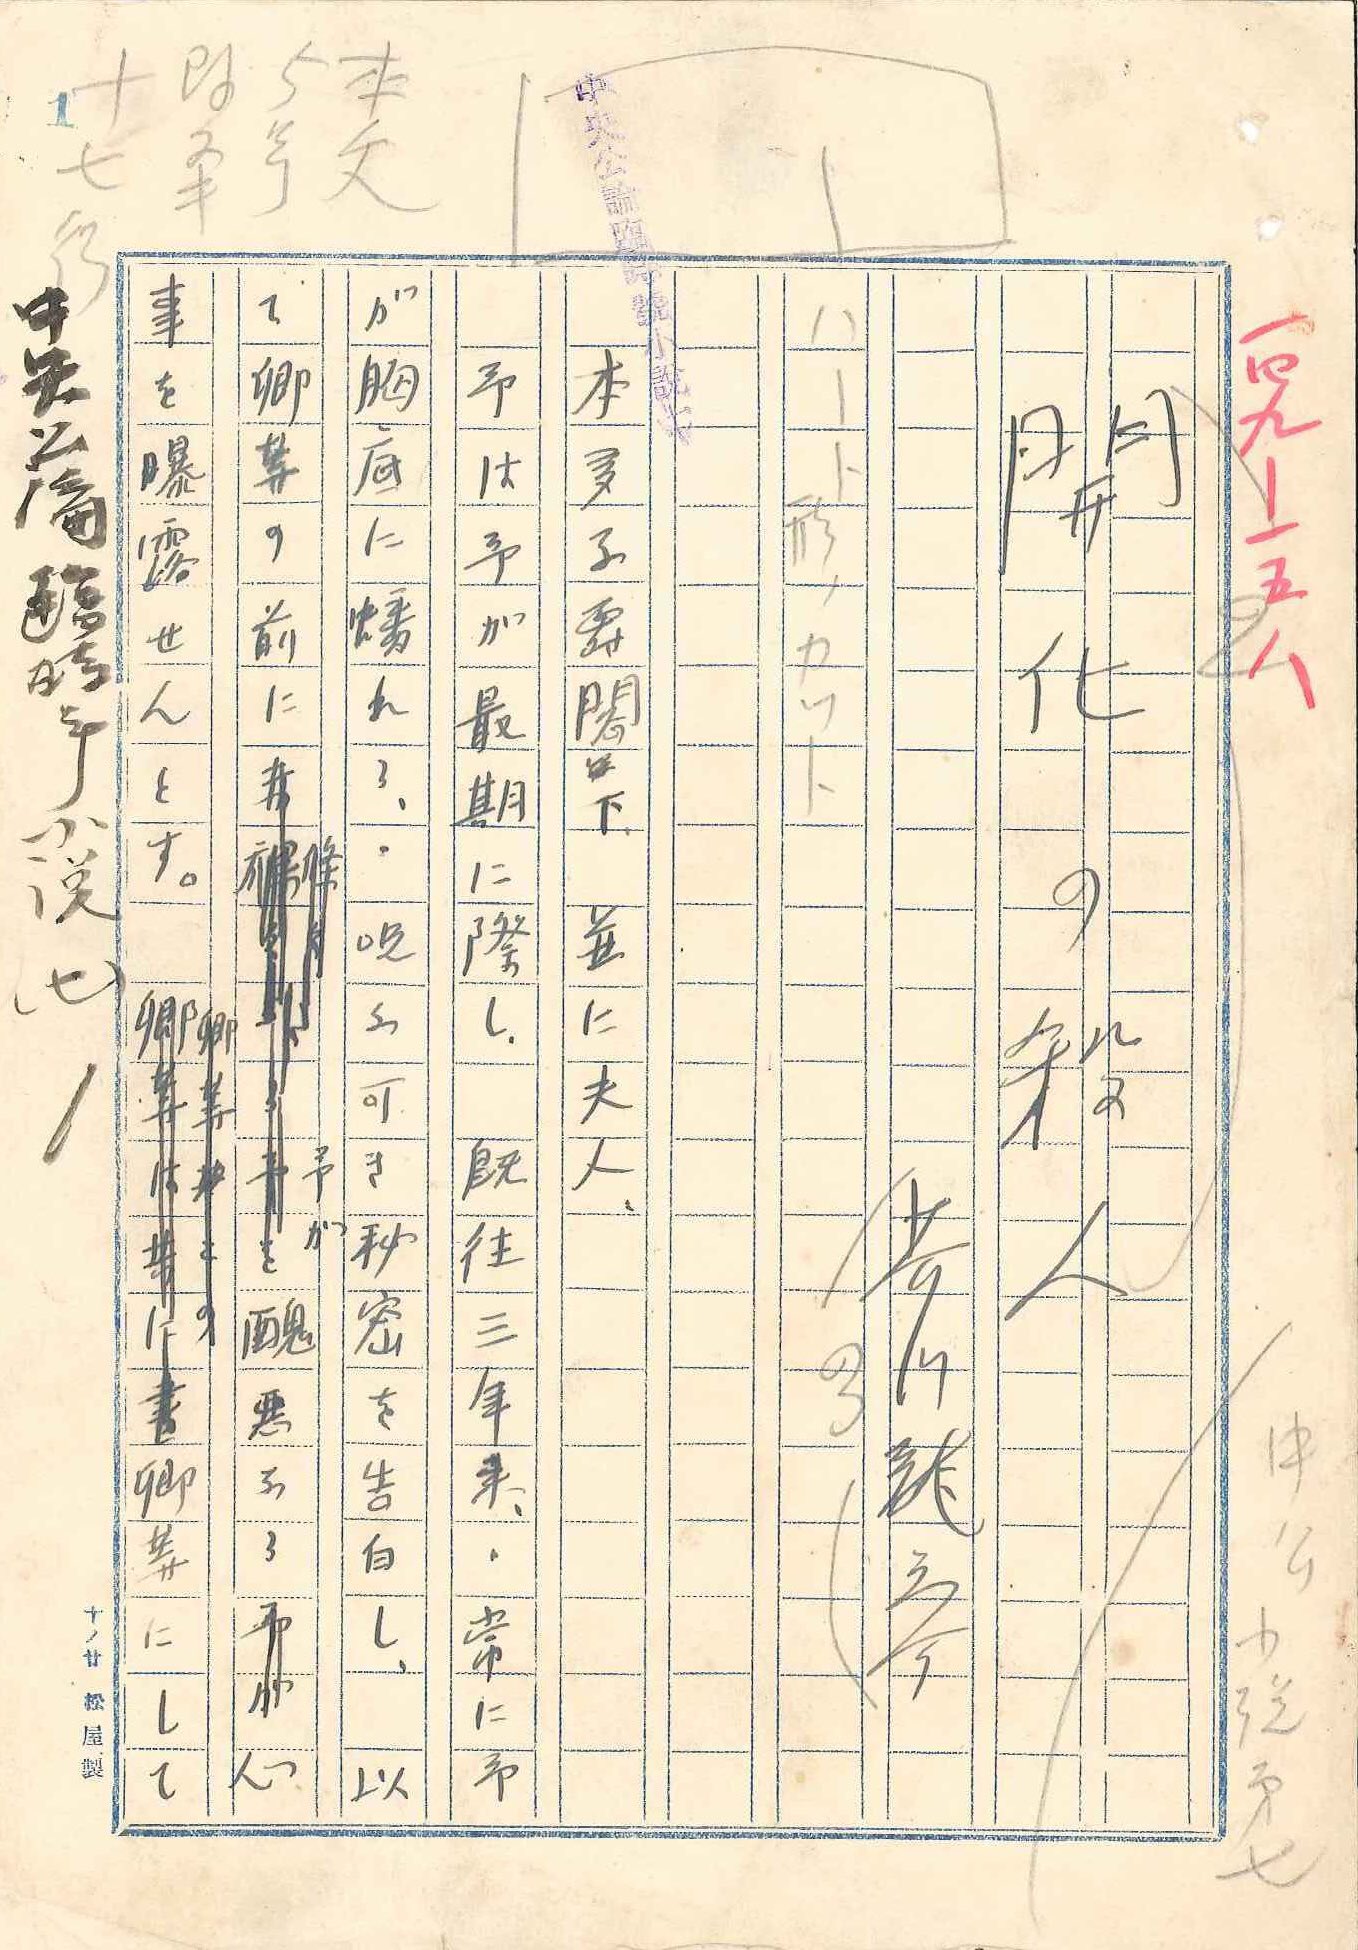 一四九―一五八
中公小説第七
開化の殺人
芥川龍之介
ハート形ノカット
中央公論臨時號小説七
本多子爵閣下、並に夫人、
予は予が最期に際し、既往三年来、常に予
が胸底に蟠れる、呪ふ可き秘密を告白し、以
て卿等の前に予が醜悪なる心
事を曝露せんとす。卿等にして
本文
5号
十七行
1
中央公論臨時号小説(七)
十ノ廿 松屋製